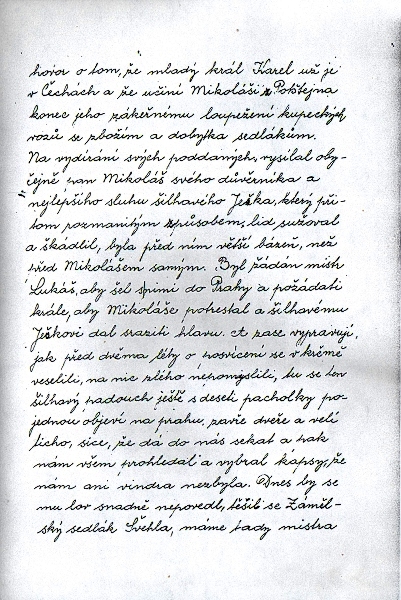 hovor o tom, že mladý král Karel už je
v Čechách a že učiní Mikoláši z Potštejna
konec jeho zákeřnému loupežení kupeckých
vozů se zbožím a dobytka sedlákům.
Na vydírání svých poddaných, vysílal oby-
čejně pan Mikoláš svého důvěrníka a
nejlepšího sluhu šilhavého Ješka, který při-
tom rozmanitým způsobem, lid sužoval
a škádlil, byla před ním větší bázeň, než
před Mikolášem samým. Byl žádán mistr
Lukáš, aby šel s nimi do Prahy a požádati
krále, aby Mikoláše potrestal a šilhavému
Ješkovi dal sraziti hlavu. A zase vypravují,
jak před dvěma léty o posvícení se v krčmě
veselili, na nic zlého nepomyslili, tu se ten
šilhavý padouch ještě s deseti pacholky po-
jednou objeví na prahu, zavře dveře a velí
ticho, sice, že dá do nás sekat a pak
nám všem prohledal a vybral kapsy, že
nám ani vindra nezbyla. Dnes by se
mu lov snadně nepovedl, těšil se Záměl-
ský sedlák Světla, máme tady mistra